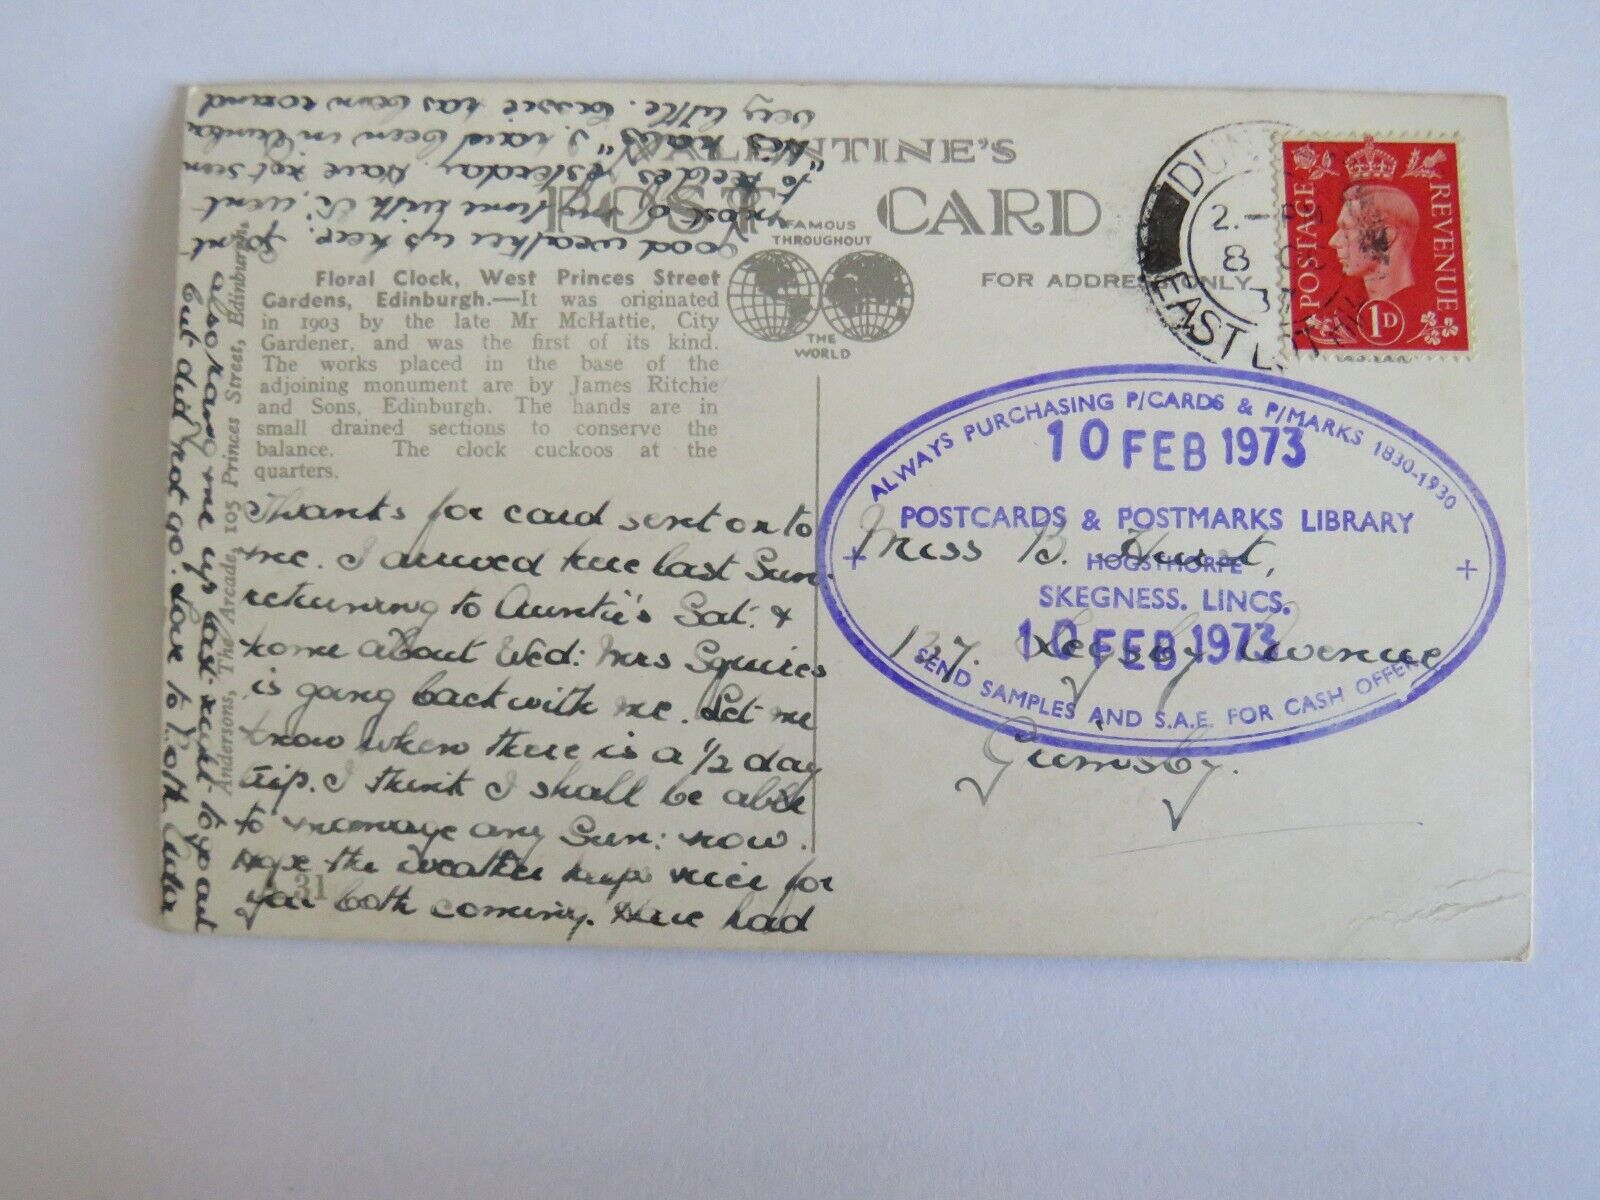 VALENTINE'S
POST CARD
FAMOUS
THROUGHOUT
THE
WORLD
FOR ADDRESS ONLY
Floral Clock, West Princes Street
Gardens, Edinburgh.—It was originated
in 1903 by the late Mr McHattie, City
Gardener, and was the first of its kind.
The works placed in the base of the
adjoining monument are by James Ritchie
and Sons, Edinburgh. The hands are in
small drained sections to conserve the
balance. The clock cuckoos at the
quarters.
Andersons, The Arcade, 105 Princes Street, Edinburgh.
A 31
Thanks for card sent on to
me. I arrived here last Sun.
returning to Auntie's Sat: &
home about Wed: Mrs Squires
is going back with me. Let me
know when there is a ½ day
trip. I think I shall be able
to manage any Sun: now.
Hope the weather keeps nice for
you both coming. Have had
good weather up here. Spent
most of my time with
to yesterday. Have not seen
"His nabs" I have been in
very little. Bessie has been round
also rang me up last night to go out
but did not go. Love to both
Miss B.
137. Legsby Avenue
Grimsby.
EAST
8
POSTAGE
REVENUE
1D
ALWAYS PURCHASING P/CARDS & P/MARKS 1830-1930
10 FEB 1973
POSTCARDS & POSTMARKS LIBRARY
HOGSTHORPE
SKEGNESS. LINCS.
10 FEB 1973
SEND SAMPLES AND S.A.E. FOR CASH OFFER